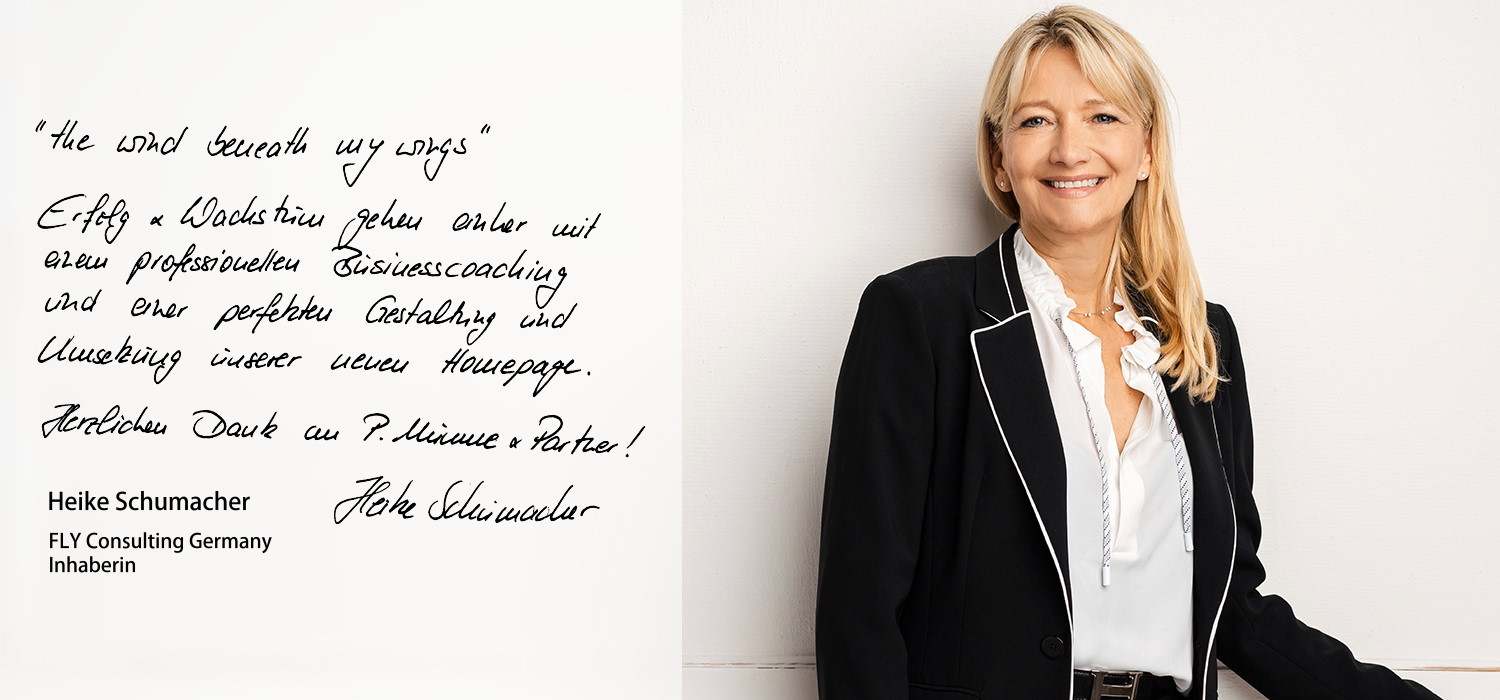 "the wind beneath my wings"
Erfolg & Wachstum gehen einher mit
einem professionellen Businesscoaching
und einer perfekten Gestaltung und
Umsetzung unserer neuen Homepage.
Herzlichen Dank an P. Mimme & Partner!
Heike Schumacher
Heike Schumacher
FLY Consulting Germany
Inhaberin